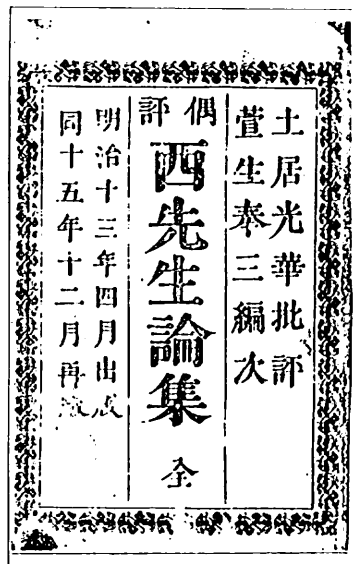 土居光華批評
萱生奉三編次
偶評
西先生論集
全
明治十三年四月出版
同十五年十二月再